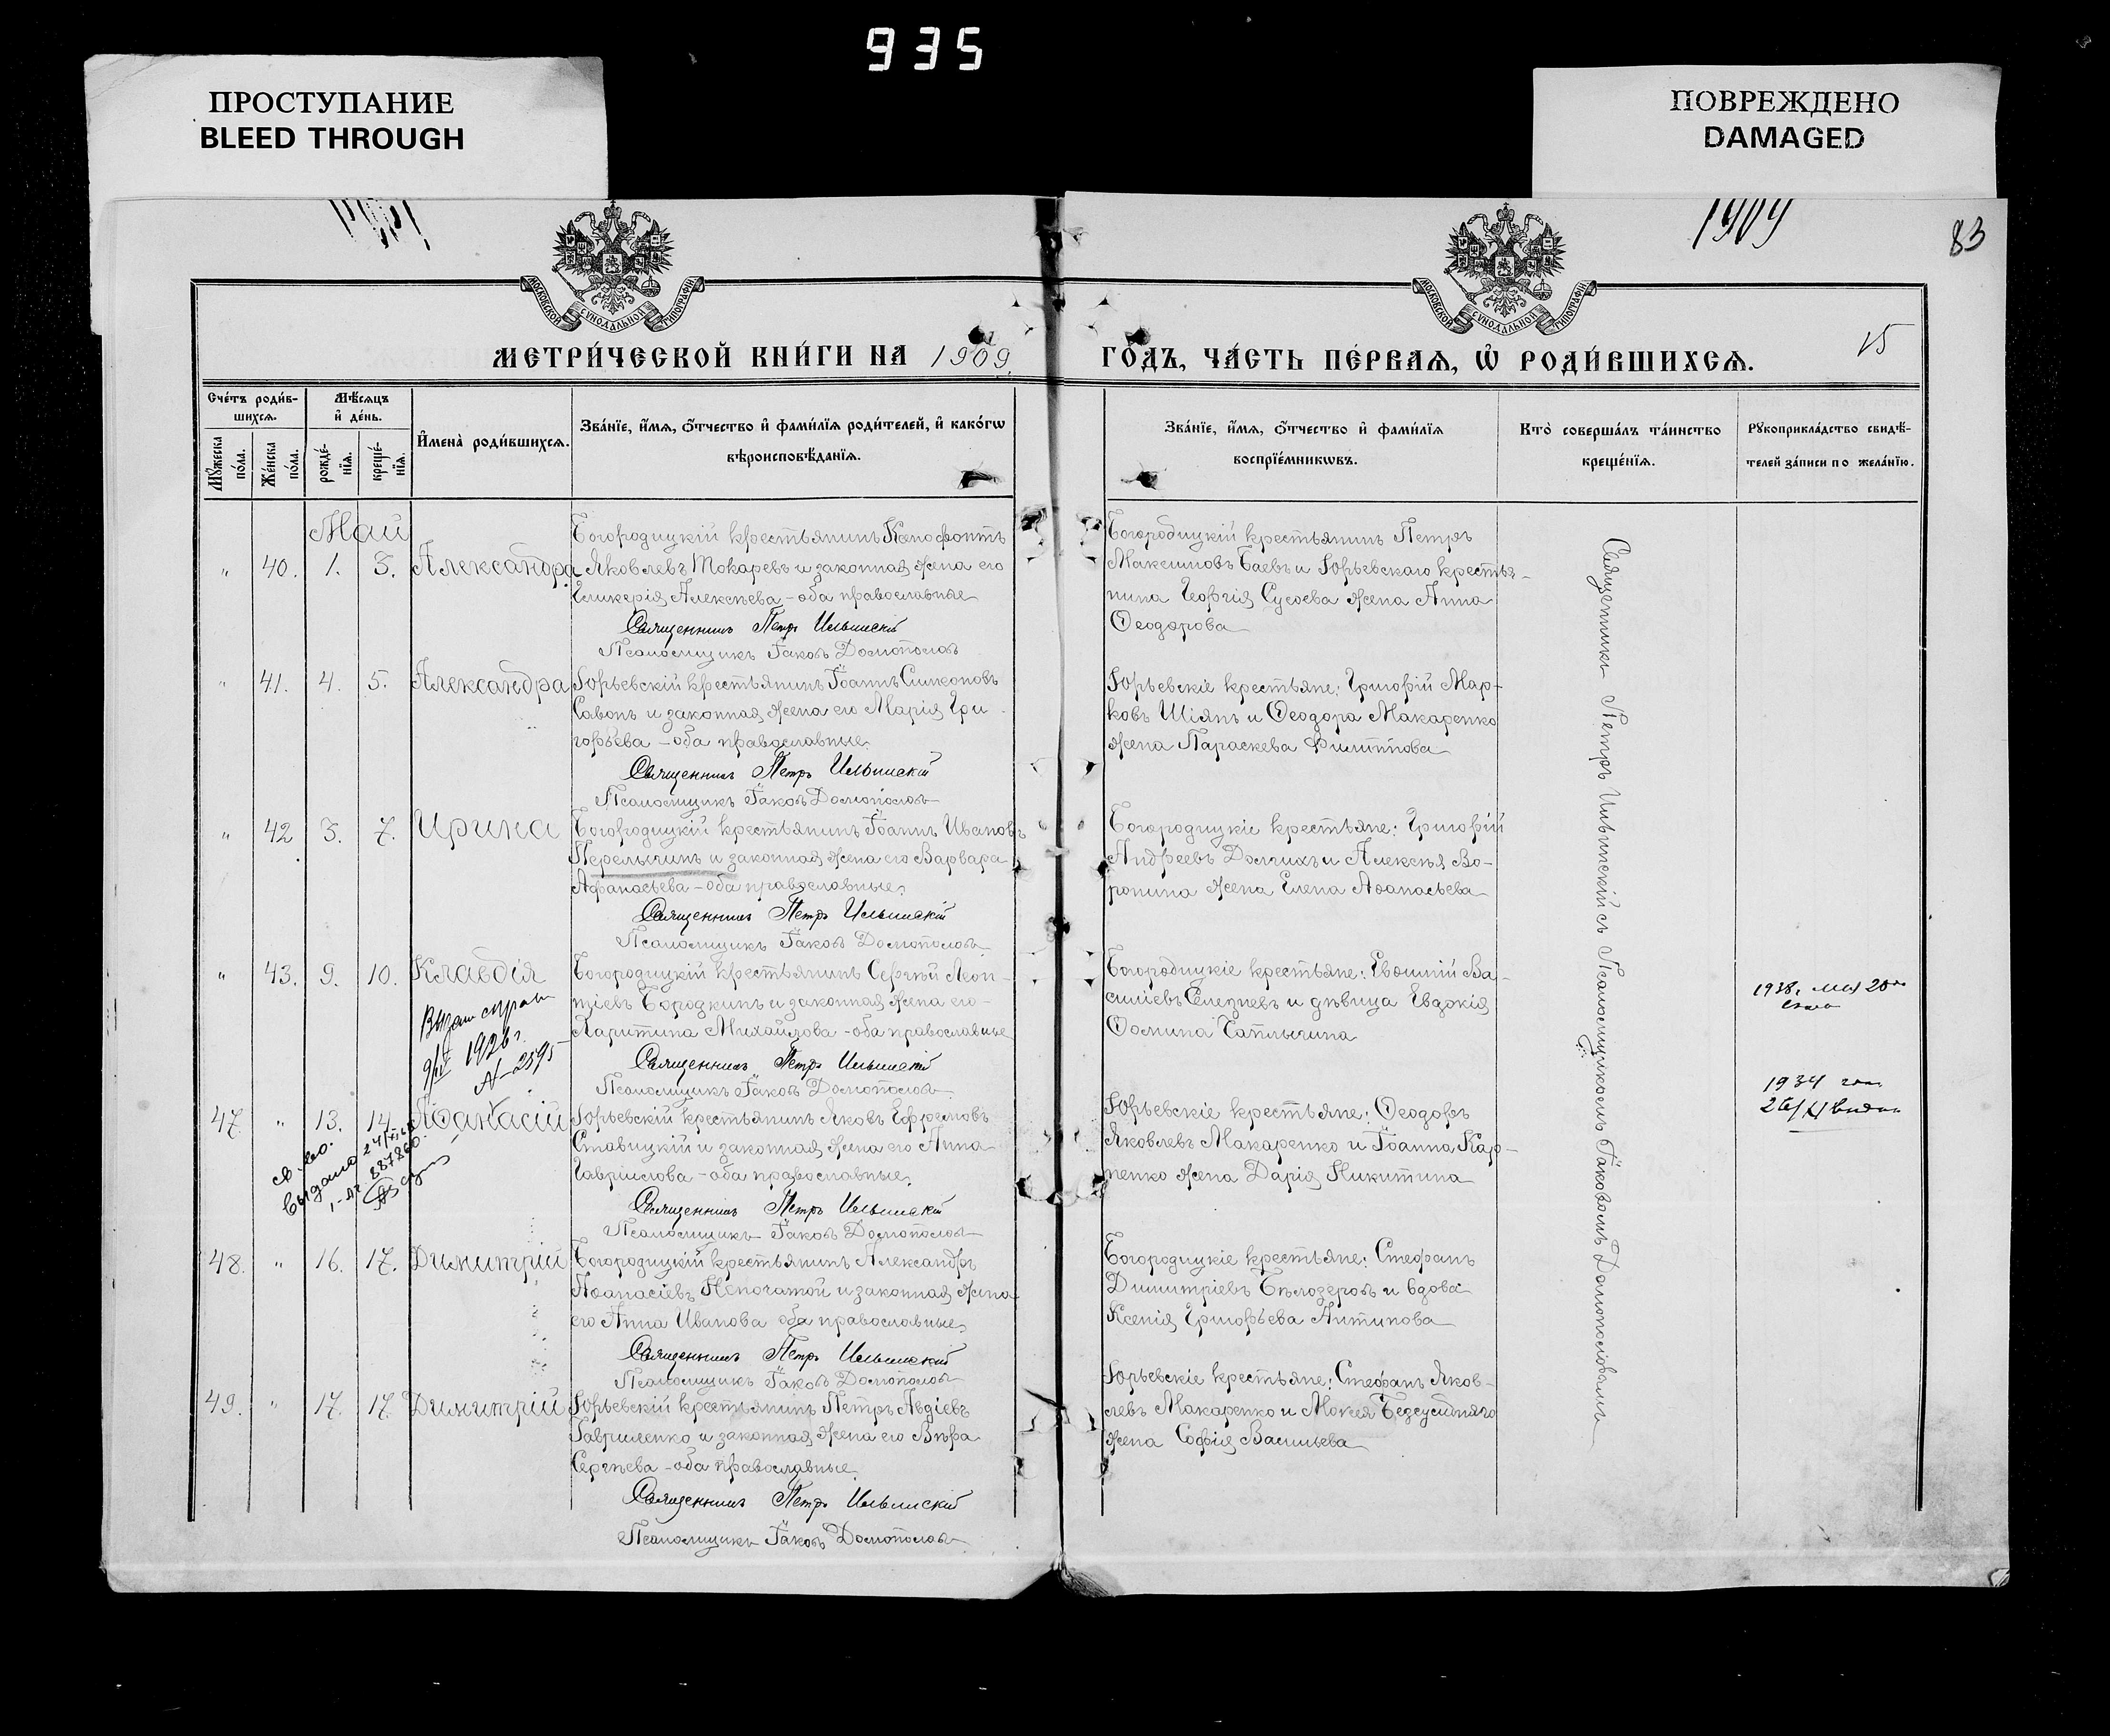 935
ПРОСТУПАНИЕ
BLEED THROUGH
ПОВРЕЖДЕНО
DAMAGED
1909
83
МОСКОВСКОЙ СѴНОДАЛЬНОЙ ТИПОГРАФІИ
МОСКОВСКОЙ СѴНОДАЛЬНОЙ ТИПОГРАФІИ
15
МЕТРИ́ЧЕСКОЙ КНИ́ГИ НА 1909
ГО́ДЪ, ЧА́СТЬ ПЕ́РВАѦ, Ѡ҆ РОДИ́ВШИХСѦ.
Сче́тъ роди́в-
шихсѧ.
Мѣ́сяцъ
и҆ де́нь.
Мꙋ́жеска по́ла.
Же́нска по́ла.
рожде́-
нїѧ.
креще́-
нїѧ.
И҆мена̀ роди́вшихсѧ.
Зва́нїе, и҆́мѧ, ѻ҆́тчество и҆ фами́лїѧ роди́телей, и҆ како́гѡ
вѣроисповѣ́данїѧ.
Зва́нїе, и҆́мѧ, ѻ҆́тчество и҆ фами́лїѧ
воспрїе́мникѡвъ.
Кто̀ соверша́лъ та́инство
креще́нїѧ.
Рꙋкоприкла́дство свидѣ́-
телей за́писи по жела́нїю.
Май
„ 40. 1. 3. Александра
Богородицкій крестьянинъ Ксенофонтъ
Яковлевъ Токаревъ и законная жена его
Гликерія Алексѣева – оба православные
Священникъ Петръ Ильинскій
Псаломщикъ Іаковъ Домополовъ
Богородицкій крестьянинъ Петръ
Максимовъ Баевъ и Юрьевскаго крестья-
нина Георгія Сусоева жена Анна
Ѳеодорова
„ 41. 4. 5. Александра
Юрьевскій крестьянинъ Іоаннъ Симоновъ
Савонъ и законная жена его Марія Гри-
горьева – оба православные.
Священникъ Петръ Ильинскій
Псаломщикъ Іаковъ Домополовъ
Юрьевскіе крестьяне: Григорій Мар-
ковъ Шіянъ и Ѳеодора Макаренко
жена Параскева Филиппова
„ 42 3. 7. Ирина
Богородицкій крестьянинъ Іоаннъ Ивановъ
Перелыгинъ и законная жена его Варвара
Аѳанасьева – оба православные.
Священникъ Петръ Ильинскій
Псаломщикъ Іаковъ Домополовъ
Богородицкіе крестьяне: Григорій
Андреевъ Долгихъ и Алексѣя Во-
ронина жена Елена Аѳанасьева
„ 43. 9. 10. Клавдія
9/IV 1926 г.
№ 2595
Богородицкій крестьянинъ Сергѣй Леон-
тіевъ Бородкинъ и законная жена его
Харитина Михайлова – оба православные
Священникъ Петръ Ильинскій
Псаломщикъ Іаковъ Домополовъ
Богородицкіе крестьяне: Евѳимій Ва-
силіевъ Селезневъ и дѣвица Евдокія
Ѳомина Чаплыгина
1938.
47. „ 13. 14. Аѳанасій
выдано
Юрьевскій крестьянинъ Яковъ Ефремовъ
Ставицкій и законная жена его Анна
Гавриилова – оба православные.
Священникъ Петръ Ильинскій
Псаломщикъ Іаковъ Домополовъ
Юрьевскіе крестьяне: Ѳеодоръ
Яковлевъ Макаренко и Іоанна Кар-
пенко жена Дарія Никитина
1934
48. „ 16. 17. Димитрій
Богородицкій крестьянинъ Александръ
Аѳанасіевъ Непочатой и законная жена
его Анна Иванова оба православные.
Священникъ Петръ Ильинскій
Псаломщикъ Іаковъ Домополовъ
Богородицкіе крестьяне: Стефанъ
Димитріевъ Бѣлозеровъ и вдова
Ксенія Григорьева Антипова
49. „ 17. 17 Димитрій
Юрьевскій крестьянинъ Петръ Авдіевъ
Гавриленко и законная жена его Вѣра
Сергѣева – оба православные.
Священникъ Петръ Ильинскій
Псаломщикъ Іаковъ Домополовъ
Юрьевскіе крестьяне: Стефанъ Яков-
левъ Макаренко и Мокея
жена Софія Васильева
Священникъ Петръ Ильинскій съ Псаломщикомъ Іаковомъ Домополовымъ